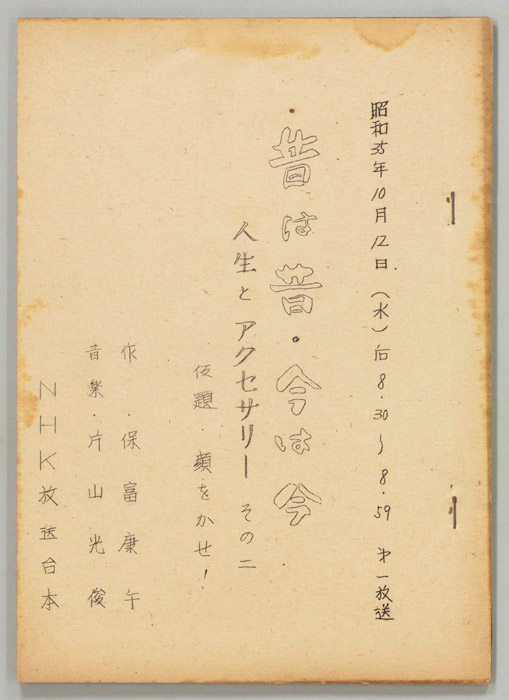 昭和35年10月12日（水）后8.30～8.59 第一放送
昔は昔・今は今
人生とアクセサリー その二
仮題・顔をかせ！
作・保富康午
音楽・片山光俊
NHK放送台本